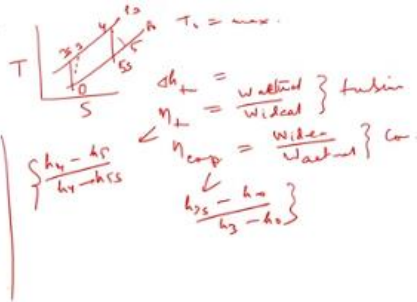 T
S
0
3s 3
4
5
5s
P3
T4 = max.
Δh_t =
η_t = Wactual / Wideal } turbin
η_comp = Wideal / Wactual } Co
{ h4 - h5 / h4 - h5s
h3s - h0 / h3 - h0 }